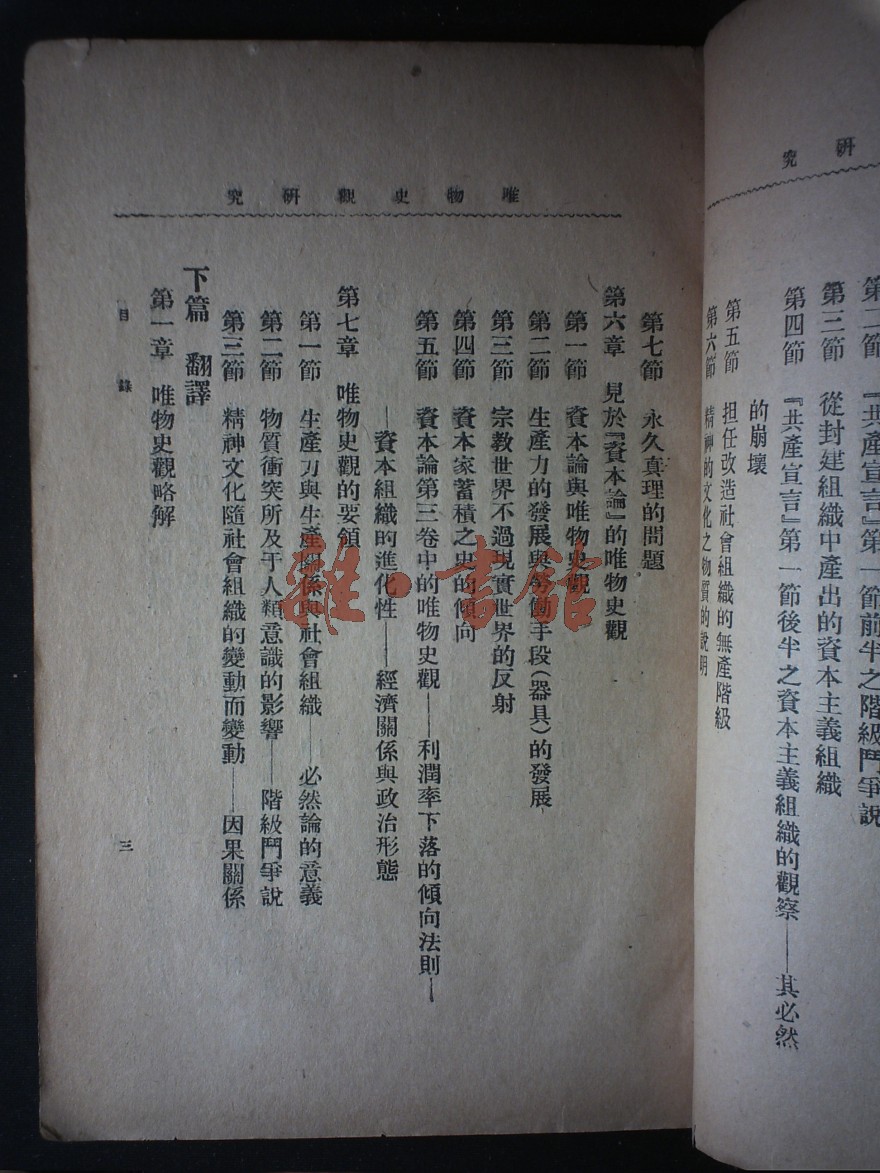 研究
『共產宣言』第一節前半之階級鬥爭說
第三節 從封建組織中產出的資本主義組織
第四節 『共產宣言』第一節後半之資本主義組織的觀察——其必然
的崩壞
第五節 担任改造社會組織的無產階級
第六節 精神的文化之物質的說明
唯物史觀研究
第七節 永久真理的問題
第六章 見於『資本論』的唯物史觀
第一節 資本論與唯物史觀
第二節 生產力的發展與勞働手段(器具)的發展
第三節 宗教世界不過現實世界的反射
第四節 資本家蓄積之史的傾向
第五節 資本論第三卷中的唯物史觀——利潤率下落的傾向法則—
—資本組織的進化性——經濟關係與政治形態
第七章 唯物史觀的要領
第一節 生產力與生產關係與社會組織——必然論的意義
第二節 物質衝突所及于人類意識的影響——階級鬥爭說
第三節 精神文化隨社會組織的變動而變動——因果關係
下篇 翻譯
第一章 唯物史觀略解
目錄
三
雜·書館